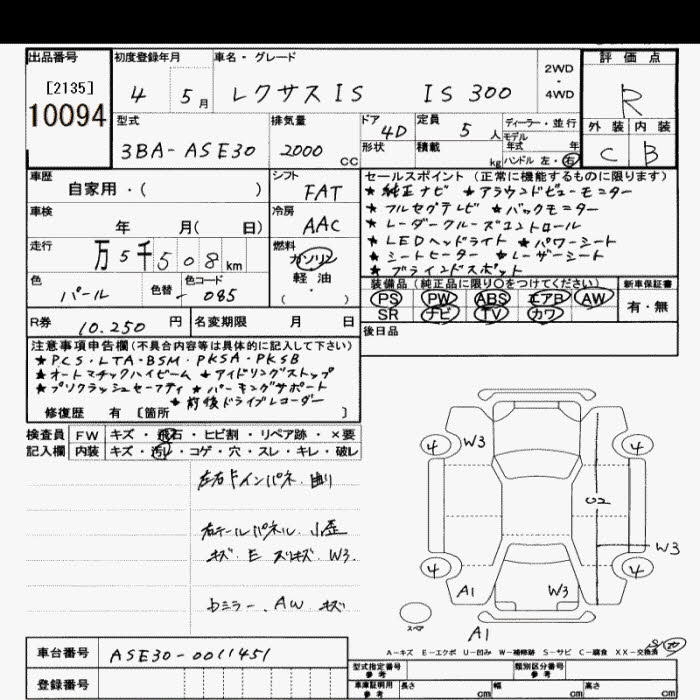 出品番号 初度登録年月 車名・グレード 評価点
[2135] 4 5月 レクサスIS IS 300 2WD・4WD R
10094
型式 排気量 ドア 4D 定員 5人 ディーラー・並行 外装 内装
3BA-ASE30 2000CC 形状 積載 kg モデル年式 年 C B
ハンドル 左・右
車歴 シフト セールスポイント (正常に機能するものに限ります)
自家用・( ) FAT ★純正ナビ ★アラウンドビューモニター
車検 冷房 ★フルセグテレビ ★バックモニター
年 月( 日) AAC ★レーダークルーズコントロール
走行 燃料 ★LEDヘッドライト ★パワーシート
万5千508km ガソリン ★シートヒーター ★レーザーシート
色 色替 色コード 軽油 ★ブラインドスポット
パール - 085 ( ・ ) 装備品 (純正品に限り○をつけてください) 新車保証書
PS PW ABS エアB AW 有・無
R券 10.250円 名変期限 月 日 SR ナビ TV カワ
後日品
注意事項申告欄(不具合内容等は具体的に記入して下さい)
★PCS・LTA・BSM・PKSA・PKSB
★オートマチックハイビーム ★アイドリングストップ
★プリクラッシュセーフティ ★パーキングサポート
★前後ドライブレコーダー
修復歴 有 [箇所 ]
検査員 FW キズ・飛石・ヒビ割・リペア跡・×要
記入欄 内装 キズ・汚れ・コゲ・穴・スレ・キレ・破レ
左右Fインパネ 曲り
右テールパネル 小歪
キズ E スリキズ W3.
ミラー、AW キズ
4 W3 4
C2
W3
4 4
A1 W3
スペア
A1
A-キズ E-エクボ U-凹み W-補修跡 S-サビ C-腐食 XX-交換済
車台番号 ASE30-0011451 型式指定番号 参考 類別区分番号 参考
登録番号 車庫証明用 参考 長さ cm 幅 cm 高さ cm